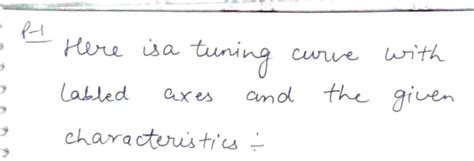 P-1
Here is a tuning curve with
labled axes and the given
characteristics :-